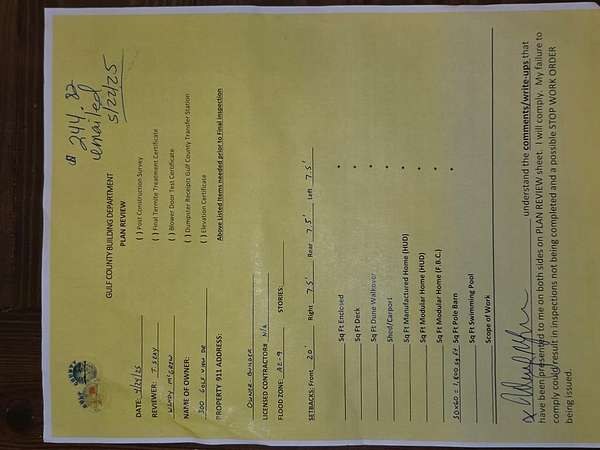 $ 244.82
emailed
5/22/25
GULF COUNTY BUILDING DEPARTMENT
PLAN REVIEW
DATE: 4/24/25
( ) Post Construction Survey
REVIEWER: T. SEAY
( ) Final Termite Treatment Certificate
WENDY McGREW
( ) Blower Door Test Certificate
NAME OF OWNER:
( ) Dumpster Receipts Gulf County Transfer Station
300 GULF VIEW DR
( ) Elevation Certificate
PROPERTY 911 ADDRESS:
Above Listed Items needed prior to Final Inspection
OWNER-BUILDER
LICENSED CONTRACTORS N/A
FLOOD ZONE: AE-9 STORIES:
SETBACKS: Front 20' Right 7.5' Rear 7.5' Left 7.5'
Sq Ft Enclosed
Sq Ft Deck
Sq Ft Dune Walkover
Shed/Carport
Sq Ft Manufactured Home (HUD)
Sq Ft Modular Home (HUD)
Sq Ft Modular Home (F.B.C.)
30x60 = 1,800 sq. ft. Sq Ft Pole Barn
Sq Ft Swimming Pool
Scope of Work
x understand the comments/write-ups that
have been presented to me on both sides on PLAN REVIEW sheet. I will comply. My failure to
comply could result in inspections not being completed and a possible STOP WORK ORDER
being issued.